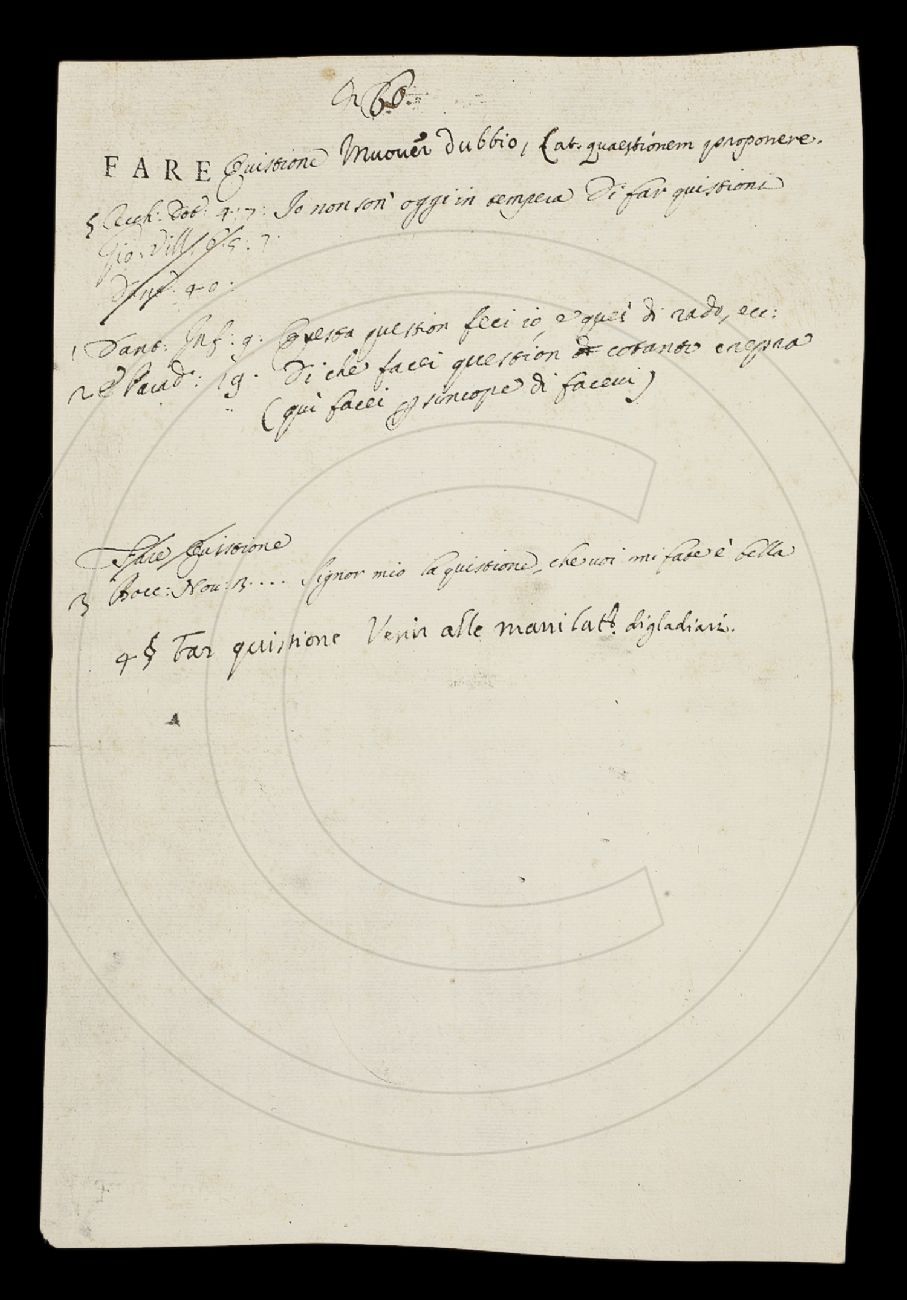 60.
FARE Quistione Muover dubbio, Lat. quaestionem proponere.
5 Cecch: Dot: 4: 7: Io non son' oggi in tempera Di far quistioni
Gio: Vill: 6: 5: 7:
Dant: 40:
1 Dant: Inf: 9: Questa question feci io, e quei di rado, ecc:
2 E Parad: 19: Di che facei question cotanto crepra
(qui facei p sincope di facevi)
Fare Quistione
3 Bocc: Nov: 3.... Signor mio la quistione, che voi mi fate è bella
4 § Far quistione Venir alle mani lat. digladiari.